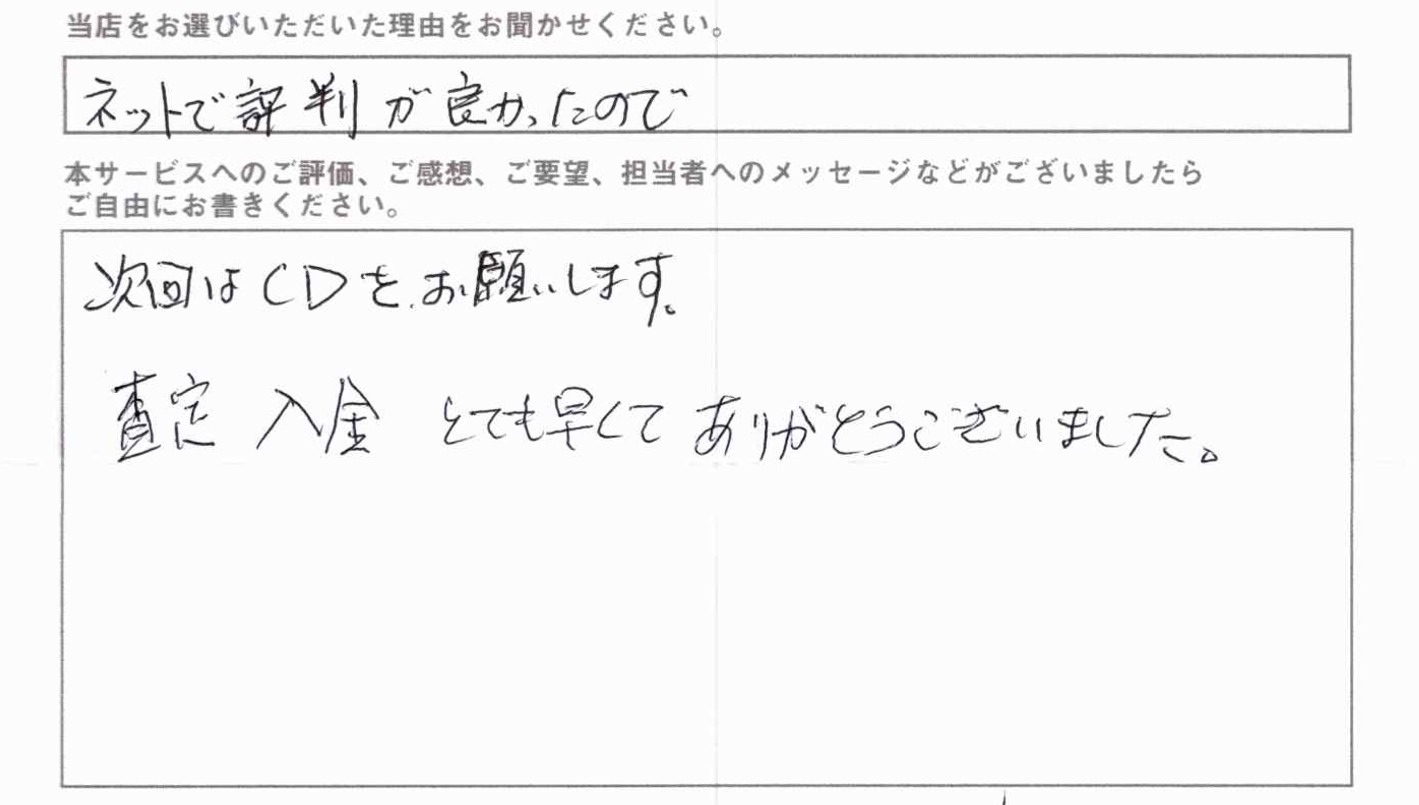 当店をお選びいただいた理由をお聞かせください。
ネットで評判が良かったので
本サービスへのご評価、ご感想、ご要望、担当者へのメッセージなどがございましたら
ご自由にお書きください。
次回はCDをお願いします。
査定 入金 とても早くて ありがとうございました。